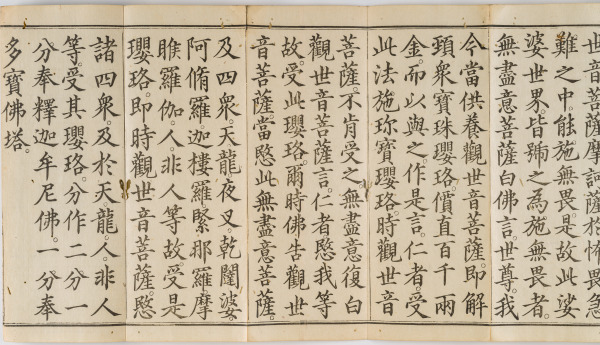 世音菩薩摩訶薩。於怖畏急
難之中。能施無畏。是故此娑
婆世界。皆號之為施無畏者。
無盡意菩薩白佛言。世尊。我
今當供養觀世音菩薩。即解
頸衆寶珠瓔珞。價直百千兩
金。而以與之。作是言。仁者。受
此法施珍寶瓔珞。時觀世音
菩薩。不肯受之。無盡意復白
觀世音菩薩言。仁者愍我等
故。受此瓔珞。爾時佛告觀世
音菩薩。當愍此無盡意菩薩。
及四衆。天龍夜叉。乾闥婆。
阿脩羅迦樓羅緊那羅摩
睺羅伽。人。非人等故。受是
瓔珞。即時觀世音菩薩愍
諸四衆。及於天。龍。人。非人
等。受其瓔珞。分作二分。一
分奉釋迦牟尼佛。一分奉
多寶佛塔。